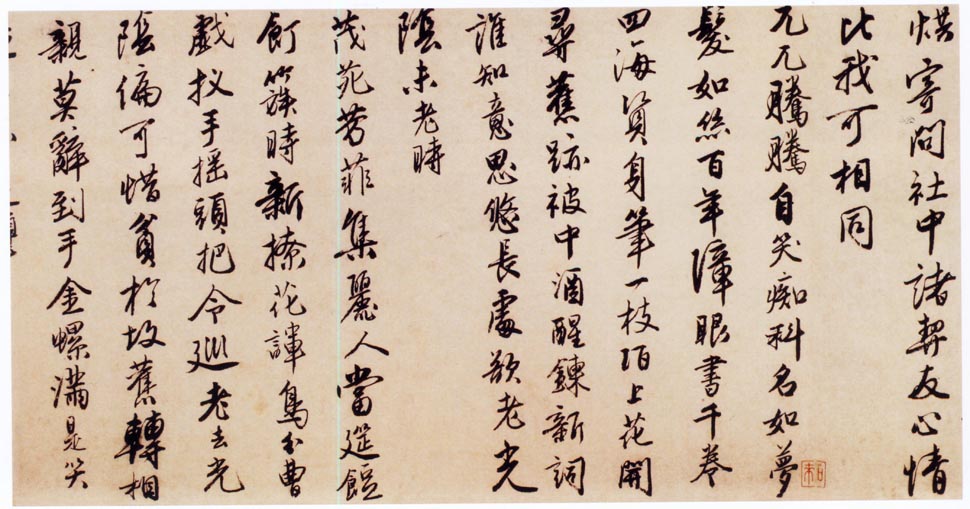 烘寄問社中諸契友心情
比我可相同
兀兀騰騰自笑痴科名如夢
髮如絲百年障眼書千卷
四海資身筆一枝陌上花開
尋舊跡被中酒醒鍊新詞
誰知意思悠長處欲老光
陰未老時
茂苑芳菲集麗人當筵餖
飣簇時新撩花譁鳥分曹
戲扠手搖頭把令巡老去光
陰偏可惜貧於故舊轉相
親莫辭到手金螺滿是笑